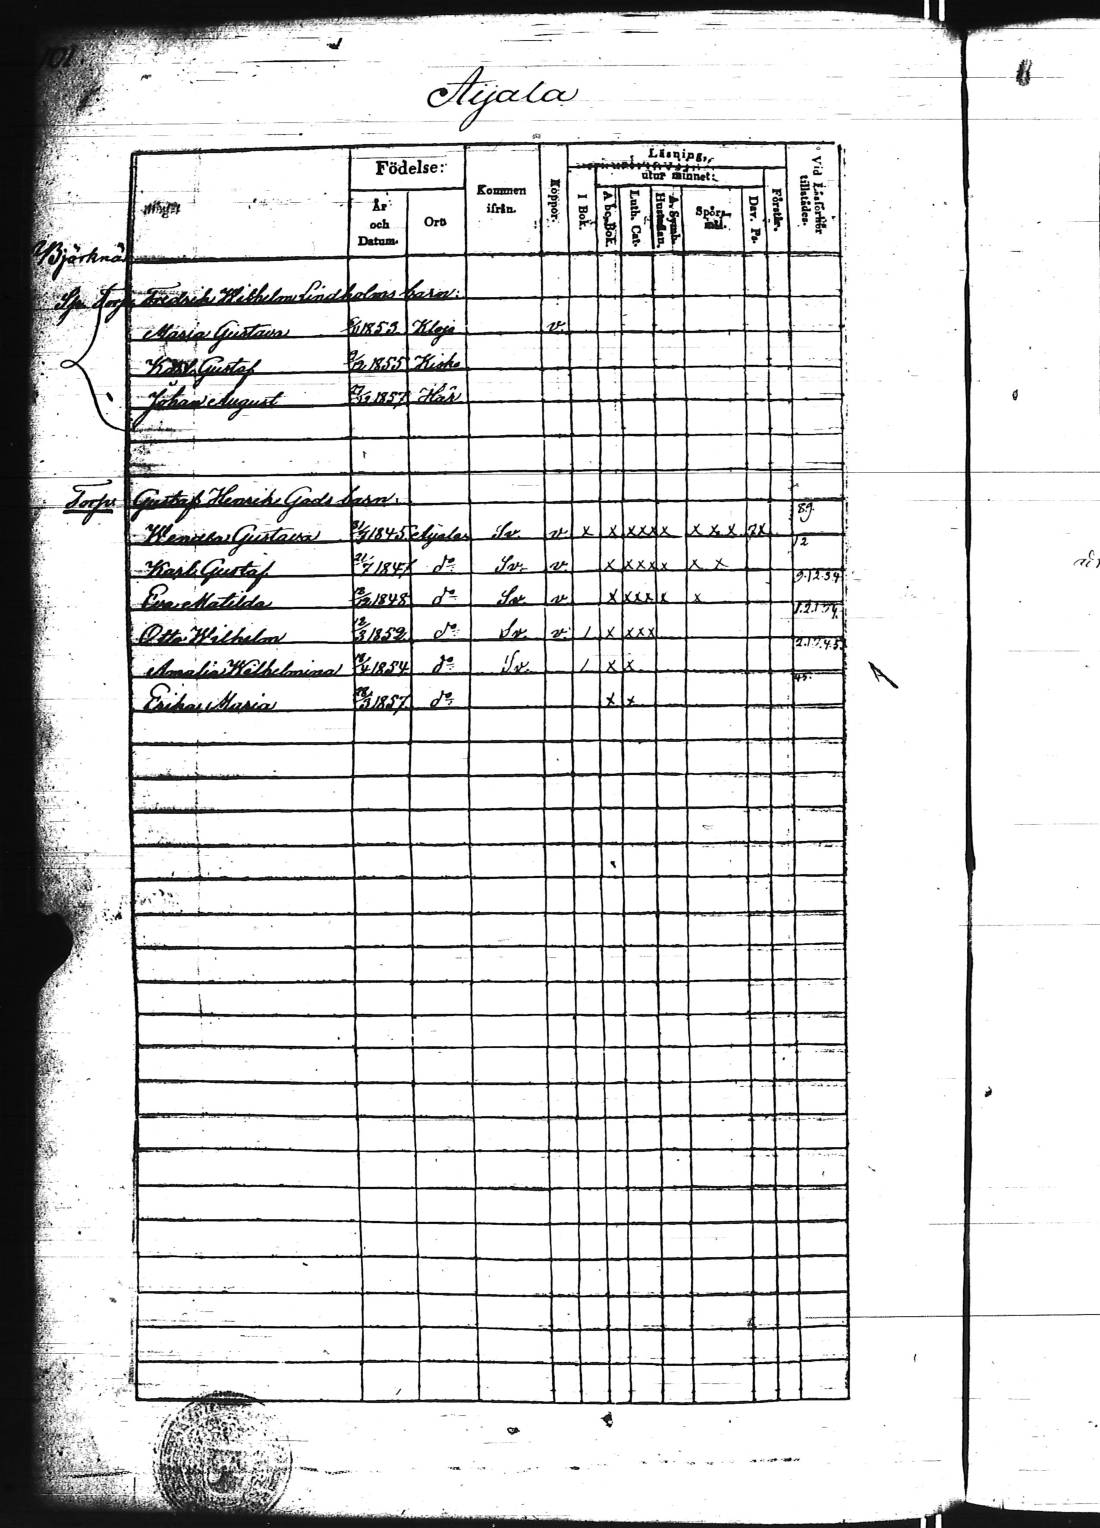 101.
Aijala
Födelse:
Läsning,
utur minnet:
År och Datum.
Ort
Kommen ifrån.
Koppor.
I Bok.
A b c Bok.
Luth. Cat.
A. Symb. Hustaflan.
Spörsmål.
Dav. Ps.
Förstår.
Vid Läsförhör tillstädes.
Björknäs
Torp. Fredrik Wilhelm Lindholms barn:
Maria Gustava 1853 v.
Karl Gustaf 1855 Kisko
Johan August 1857 Här
Torp. Gustaf Henrik Gads barn: 89.
Gustava 1845 Aijala Sv. v x x xxxx x x x xx 12
Karl Gustaf 21/7 1847 do Sv. v x xxxx x x
Eva Matilda 1848 do Sv. v x xxxx x
Otto Wilhelm 12/3 1852 do Sv. v / x xxx
Amalia Wilhelmina 18/4 1854 do Sv. / x x 45.
Erika Maria 28/3 1857 do x x